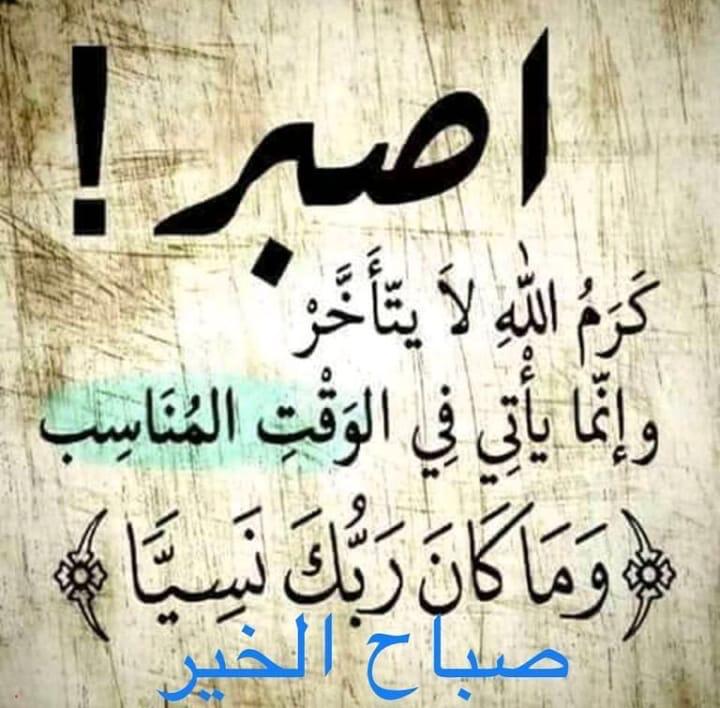 اصبر !
كَرَمُ اللهِ لاَ يتّأَخَّرْ
وإنّما يأْتِي فِي الوَقْتِ المُنَاسِب
﴿وَمَا كَانَ رَبُّكَ نَسِيَّا﴾
صباح الخير